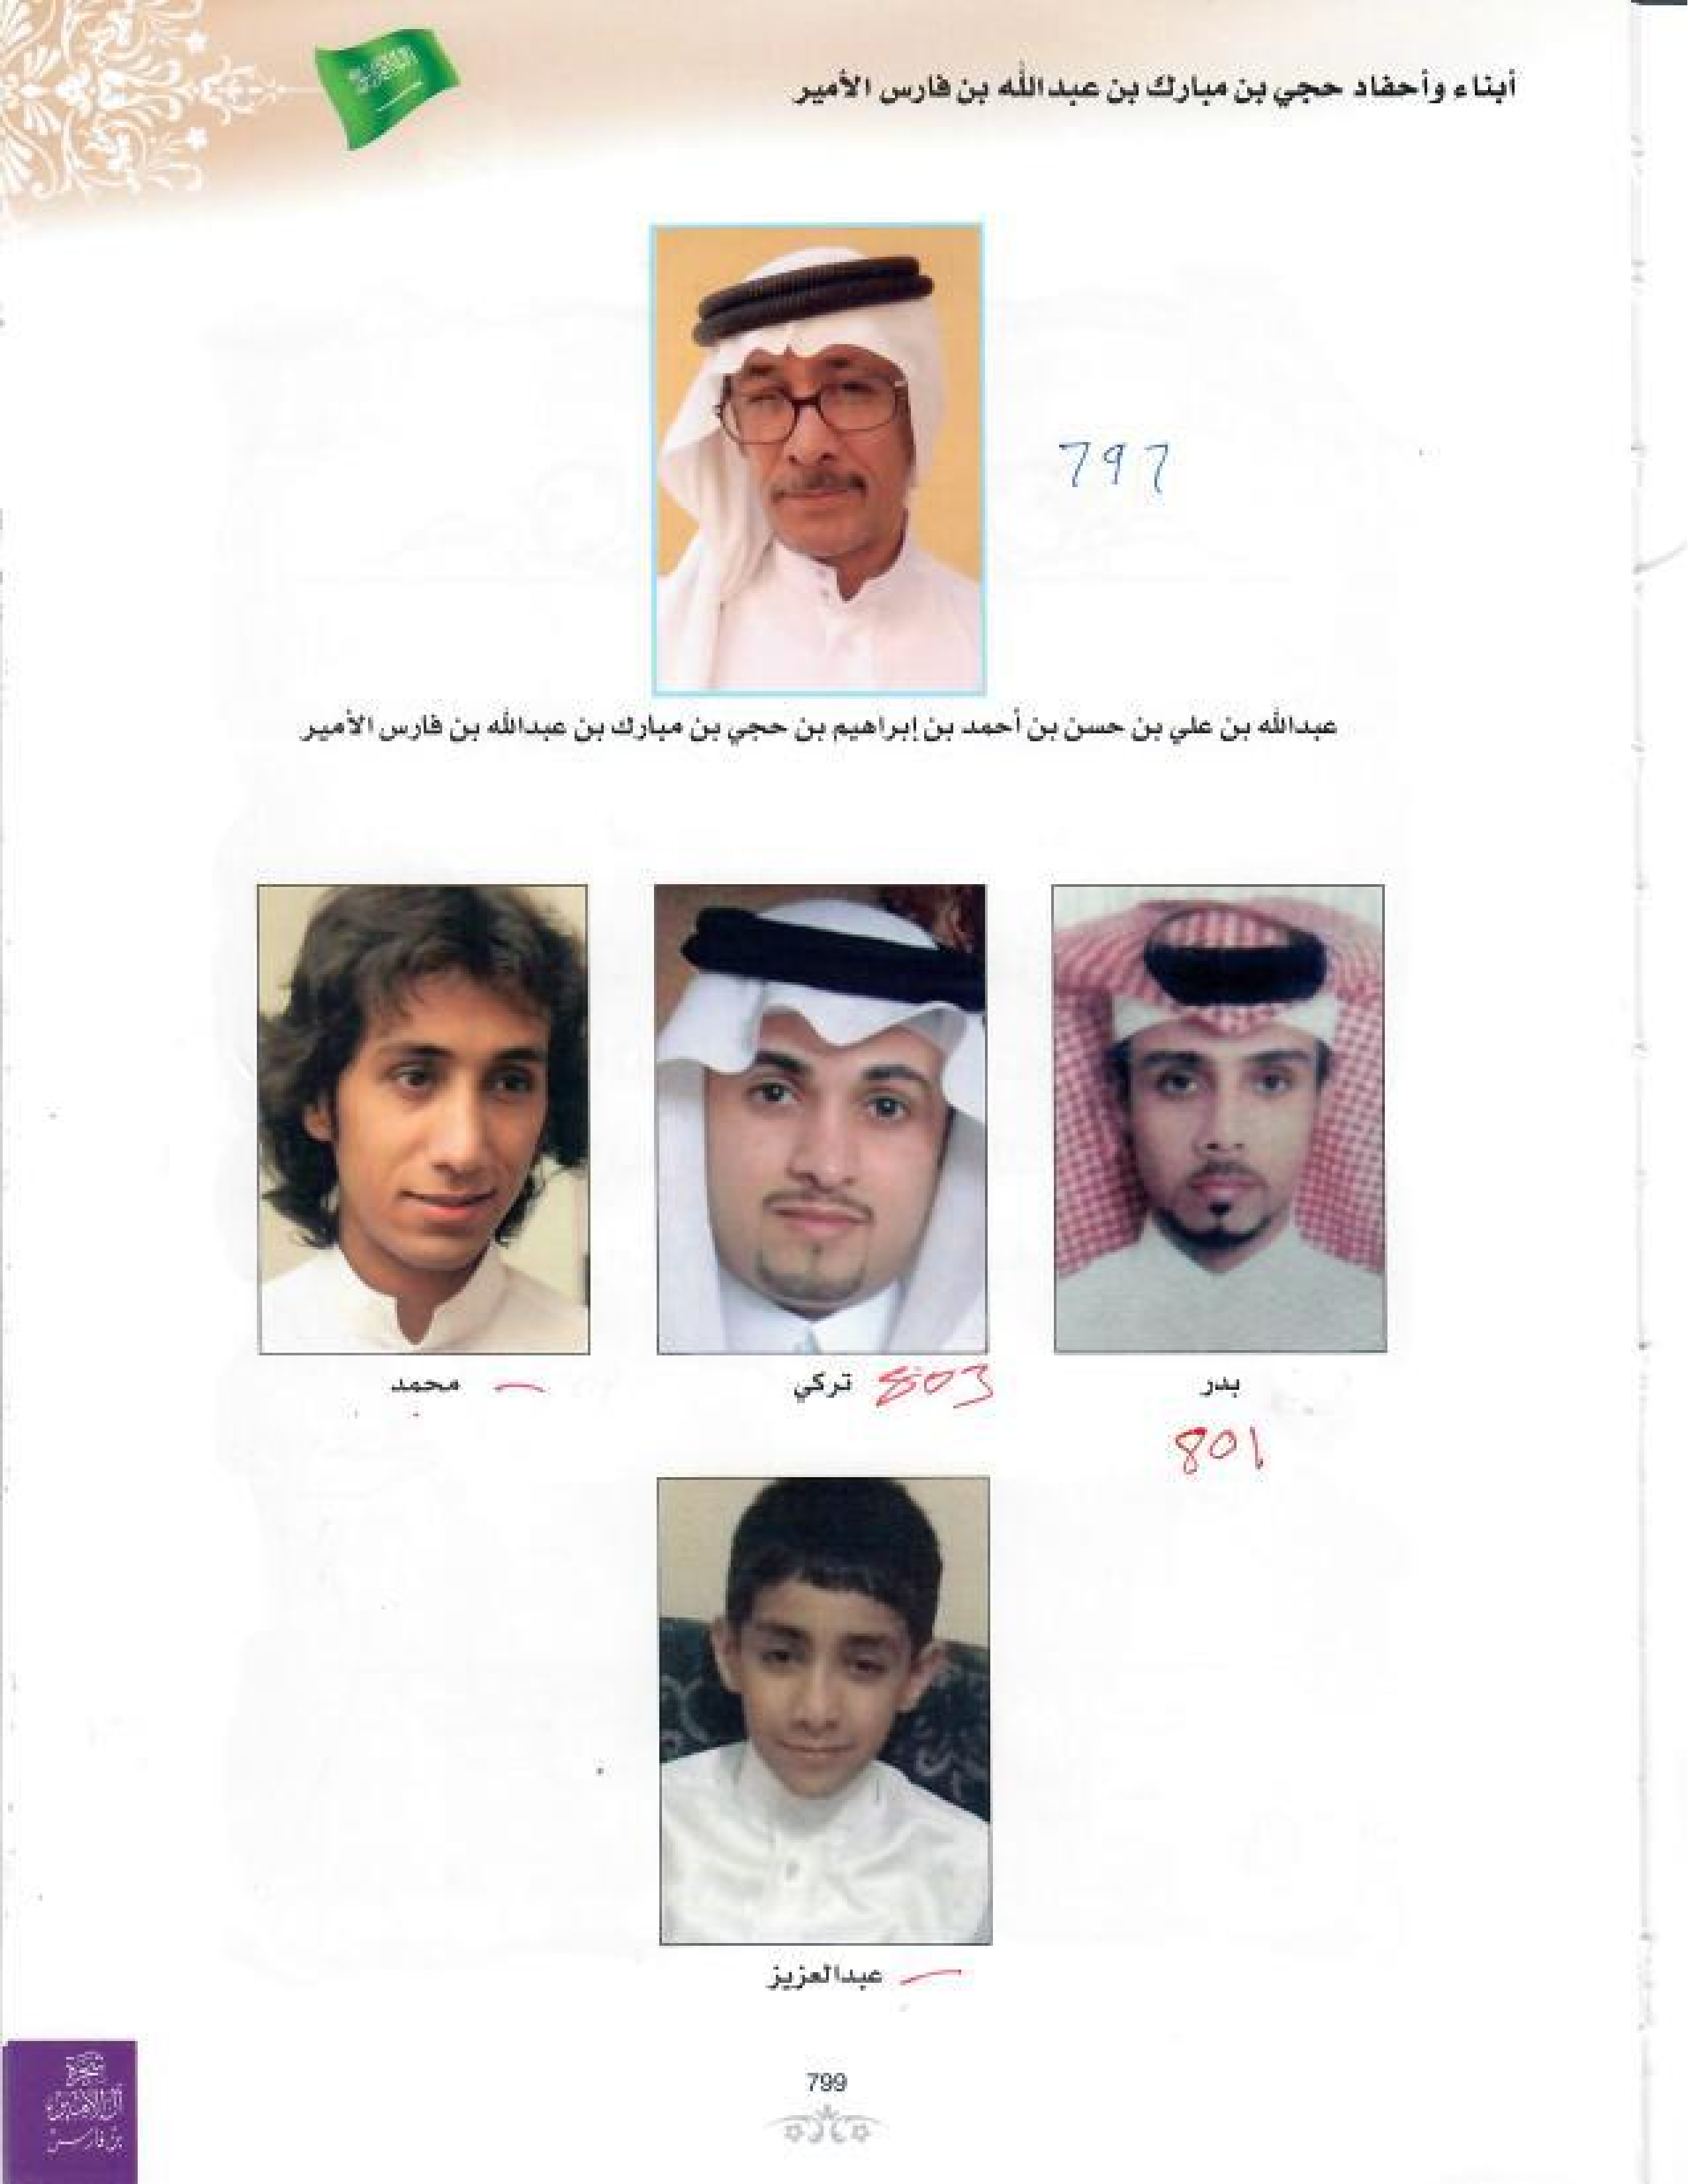 أبناء وأحفاد حجي بن مبارك بن عبدالله بن فارس الأمير
797
عبدالله بن علي بن حسن بن أحمد بن إبراهيم بن حجي بن مبارك بن عبدالله بن فارس الأمير
بدر
801
تركي 803
محمد
عبدالعزيز
799
شجرة
آل الأمير
بن فارس